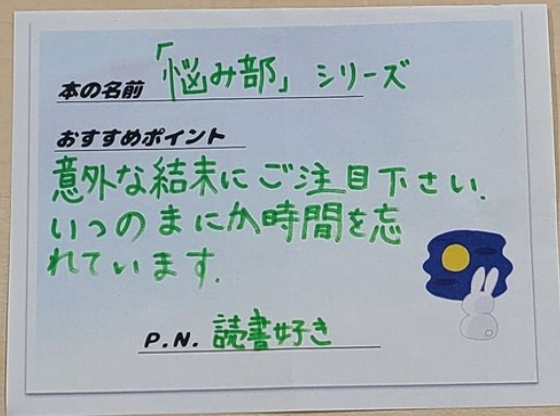 本の名前 「悩み部」シリーズ
おすすめポイント
意外な結末にご注目下さい.
いつのまにか時間を忘
れています.
P.N. 読書好き